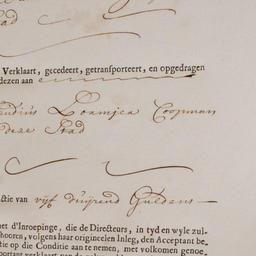 Stad
Verklaart, gecedeert, getransporteert, en opgedragen
dezen aan
Loamjea Coopman
deze Stad
ctie van vijf duijzend Guldens
et d'Inroepinge, die de Directeurs, in tyd en wyle zul-
hooren, volgens haar origineelen Inleg, den Acceptant be-
tie op die Conditie aan te nemen, met volkomen genoe-